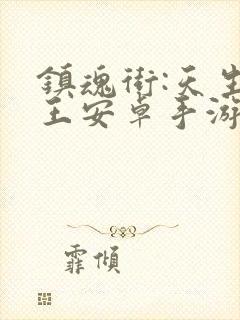 鎮魂街:天生
王安卓手游
霏傾